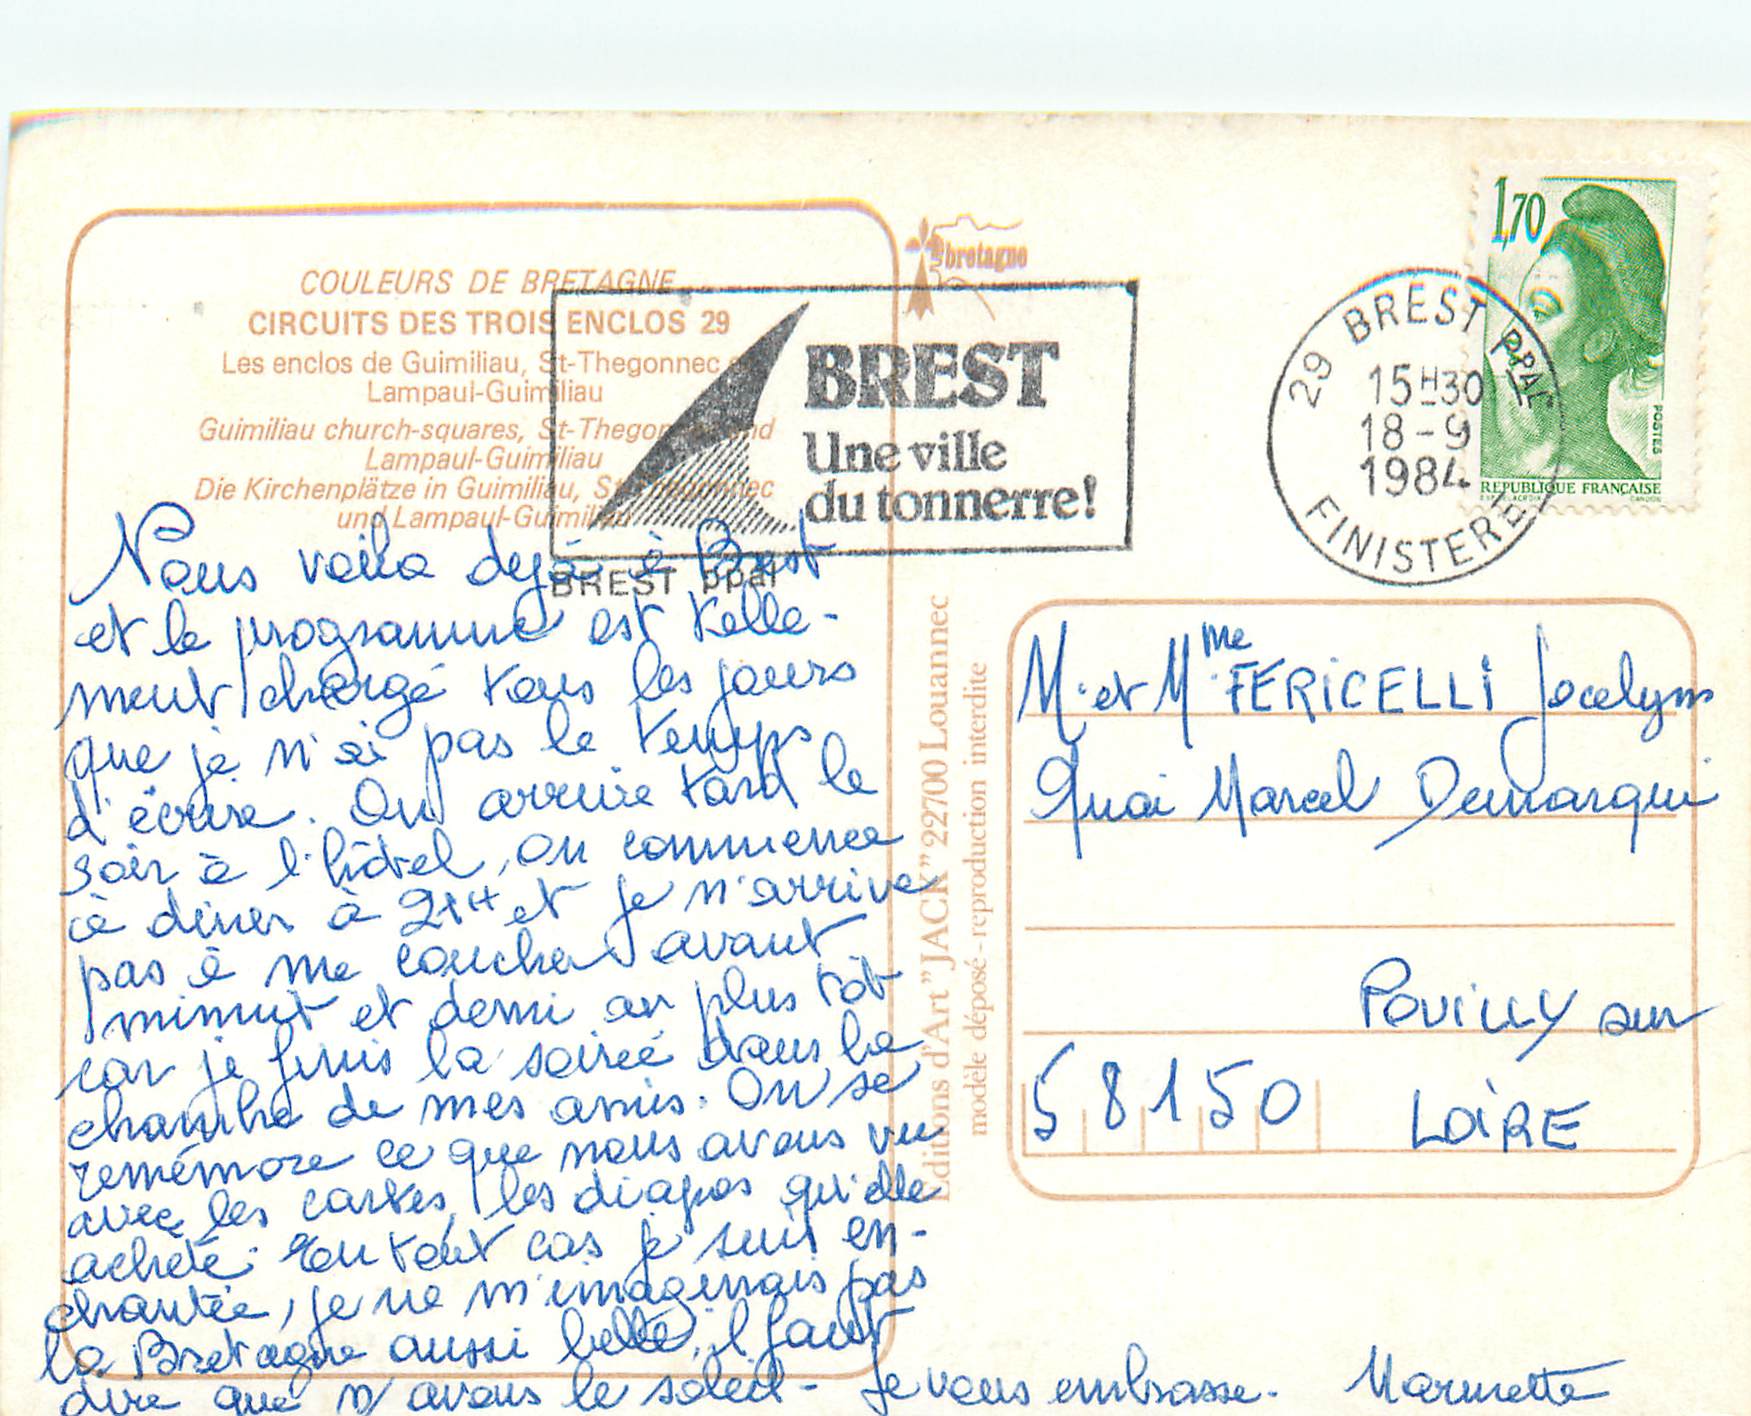 COULEURS DE BRETAGNE
CIRCUITS DES TROIS ENCLOS 29
Les enclos de Guimiliau, St-Thegonnec
Lampaul-Guimiliau
Guimiliau church-squares, St-Thegonnec and
Lampaul-Guimiliau
Die Kirchenplätze in Guimiliau, St-Thegonnec
und Lampaul-Guimiliau
bretagne
BREST
Une ville
du tonnerre!
BREST ppal
29 BREST PPAL
15H30
18-9
1984
FINISTERE
1,70
POSTES
REPUBLIQUE FRANÇAISE
Nous voila dejà à Brest
et le programme est telle-
ment chargé tous les jours
que je n'ai pas le temps
d'écrire. On arrive tard le
soir à l'hôtel, on commence
à diner à 21H et je n'arrive
pas à me coucher avant
minuit et demi au plus tôt
car je finis la soirée dans la
chambre de mes amis. On se
remémore ce que nous avons vu
avec les cartes, les diapos qu'elle
achète. En tout cas je suis en-
chantée, je ne m'imaginais pas
la Bretagne aussi belle, il faut
dire que n/ avons le soleil - Je vous embrasse. Marinette
Editions d'Art "JACK" 22700 Louannec
modèle déposé - reproduction interdite
M. et Mme FERICELLI Jocelyns
Quai Marcel Demarqui
POUILLY sur
58150 LOIRE